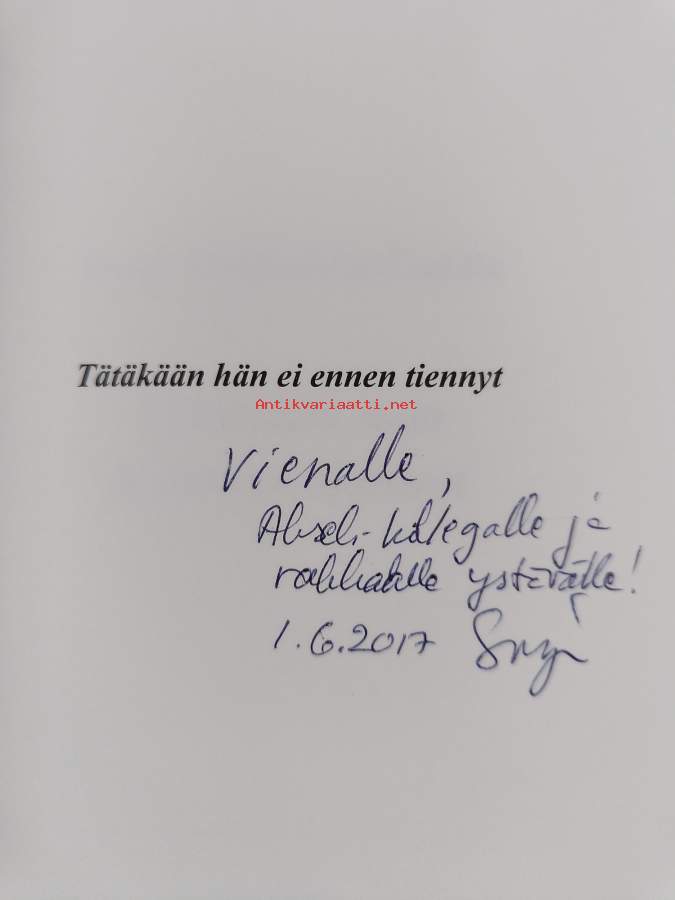 Tätäkään hän ei ennen tiennyt
Antikvariaatti.net
Vienalle,
kollegalle ja
rakkaalle ystävälle!
1.6.2017